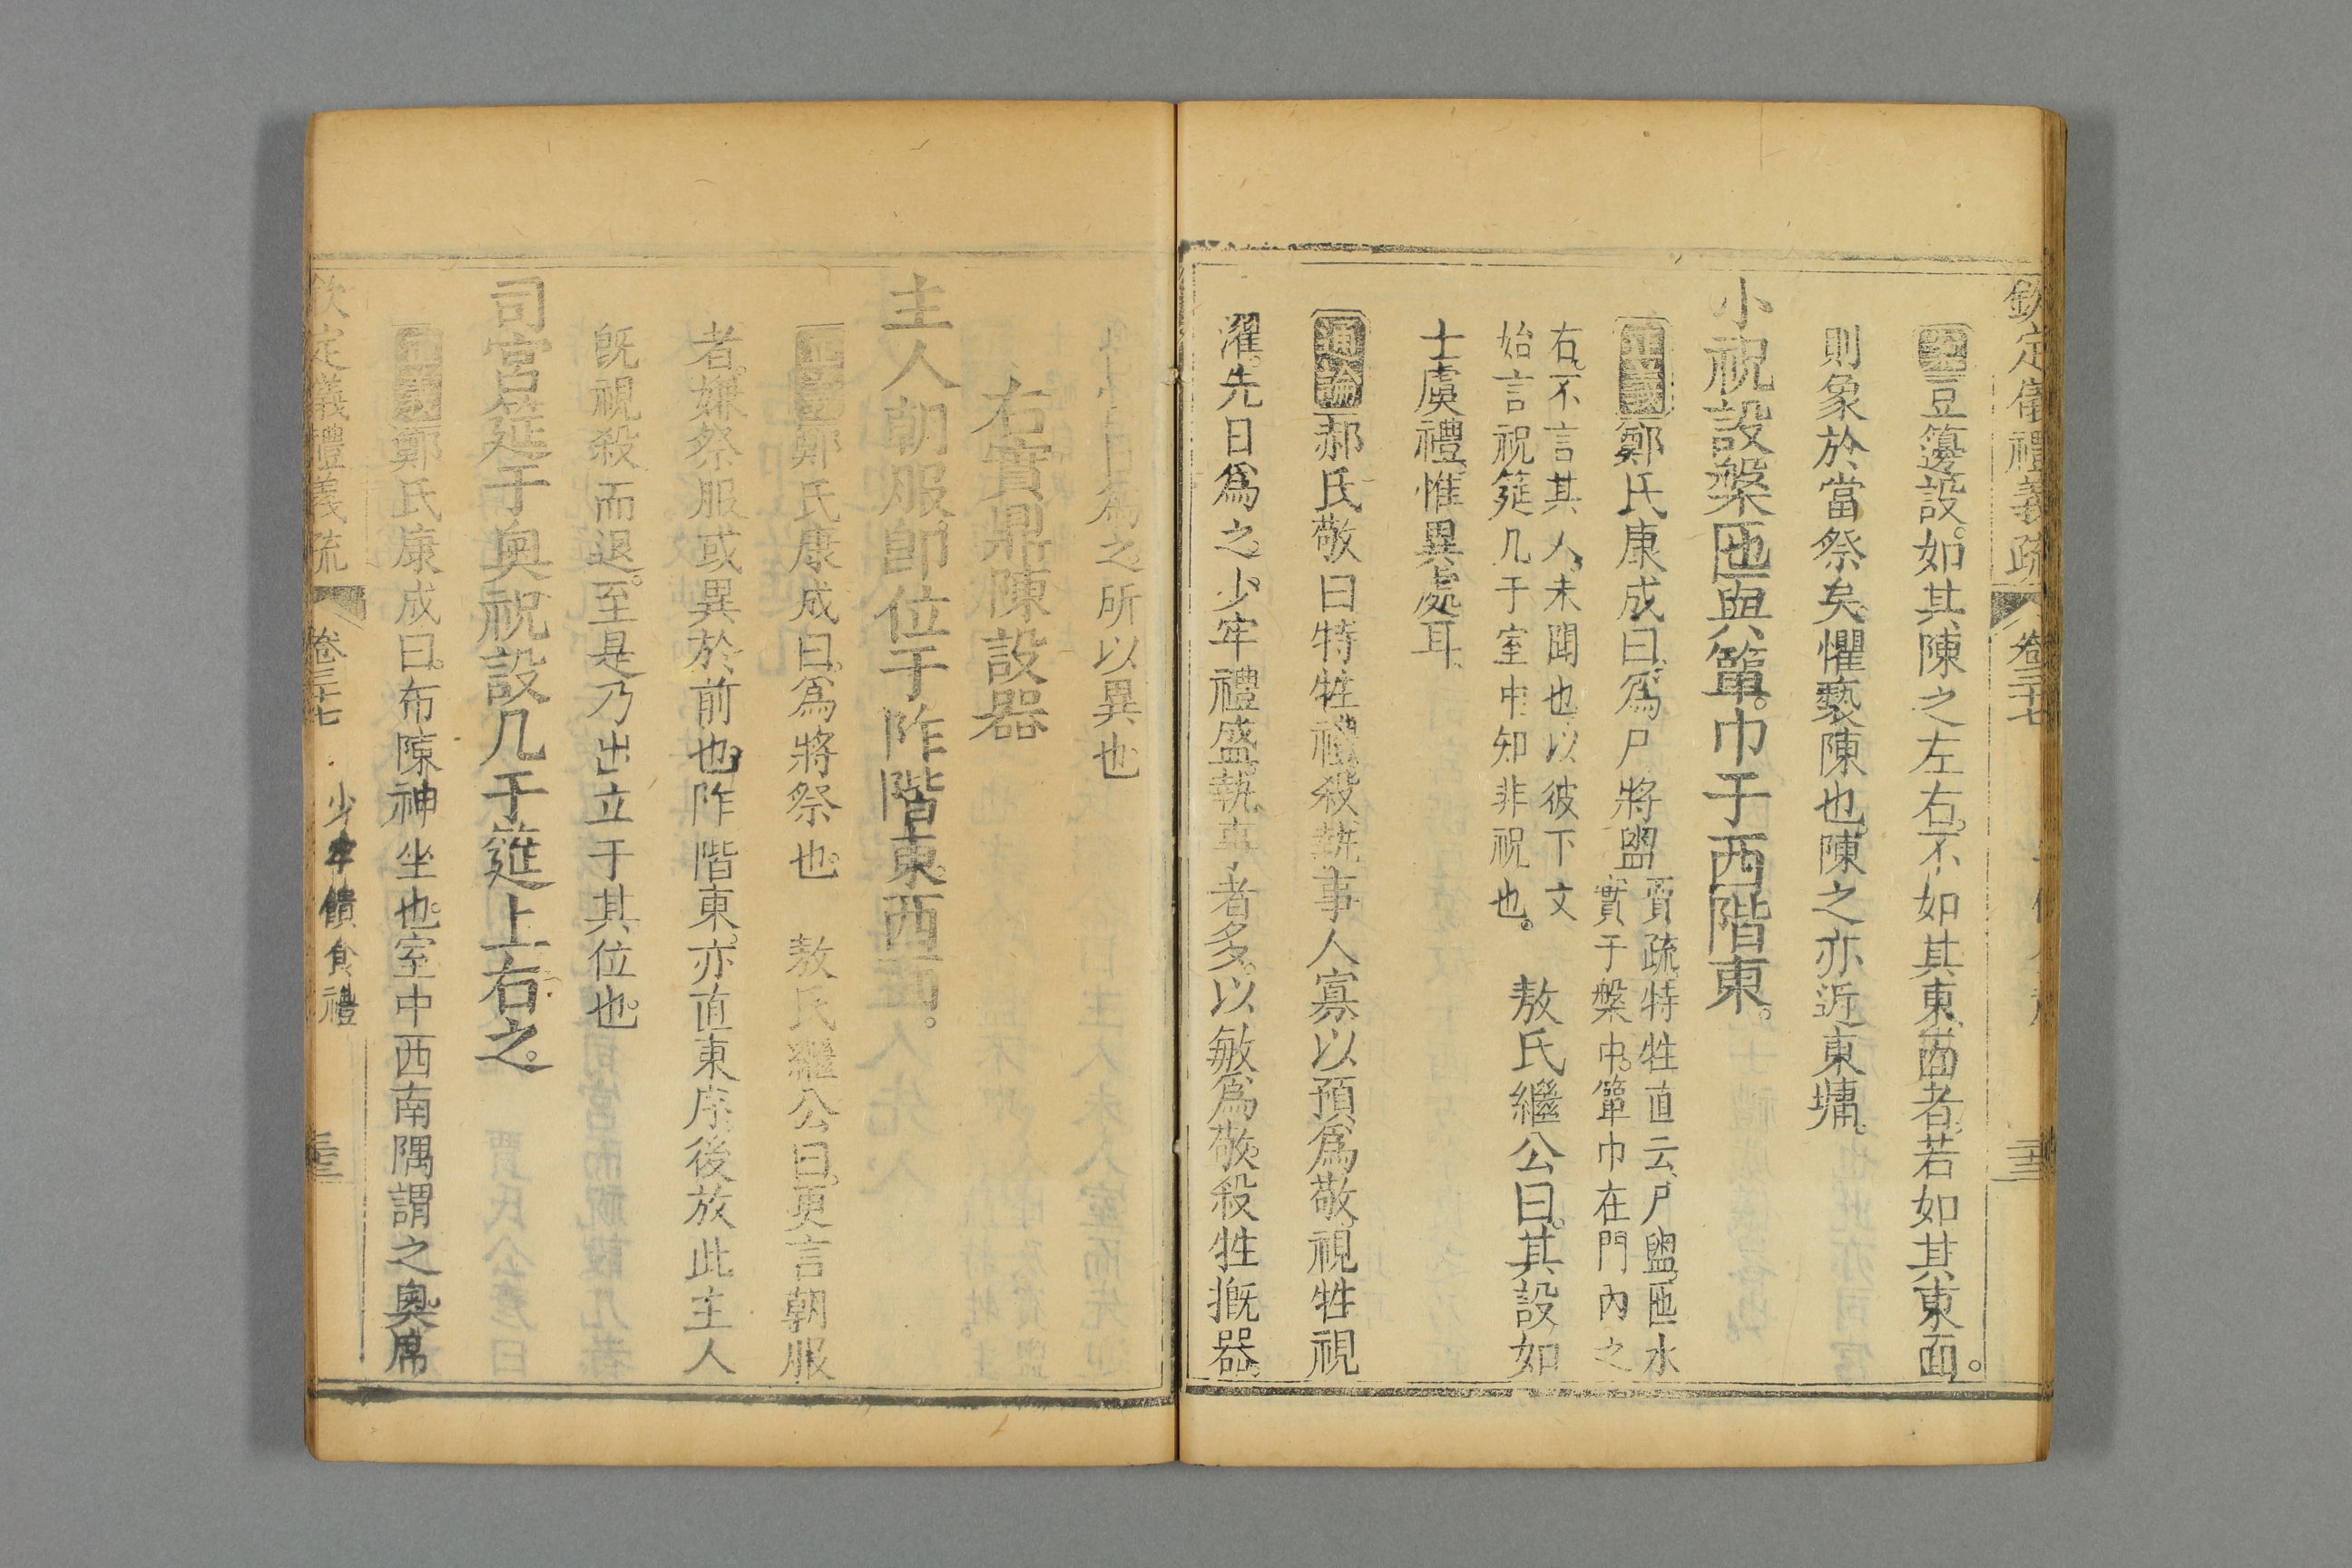 欽定儀禮義疏 卷三十七
豆籩設如其陳之左右。不如其東面者。若如其東面。
則象於當祭矣。懼褻陳也。陳之亦近東墉。
小祝設槃匜與簞。巾于西階東。
正義鄭氏康成曰。為尸將盥
賈疏特牲直云尸盥。匜水
實于槃中。簞巾在門內之
右。不言其人。未聞也以彼下文
始言祝筵几于室中知非祝也。
敖氏繼公曰。其設如
士虞禮。惟異處耳。
通論郝氏敬曰特牲禮殺執事人寡以預為敬。視牲視
濯。先日為之。少牢禮盛。執事者多。以敏為敬。殺牲摡器。
為之所以異也
右實鼎陳設器
主人朝服。即位于阼階東。西面。
正義鄭氏康成曰。為將祭也。 敖氏繼公曰。更言朝服
者。嫌祭服或異於前也。阼階東。亦直東序。後放此主人
既視殺而退。至是乃出立于其位也。
司宮筵于奧祝設几于筵上右之。
正義鄭氏康成曰。布陳神坐也。室中西南隅謂之奧。席
欽定儀禮義疏 卷三十七 少牢饋食禮